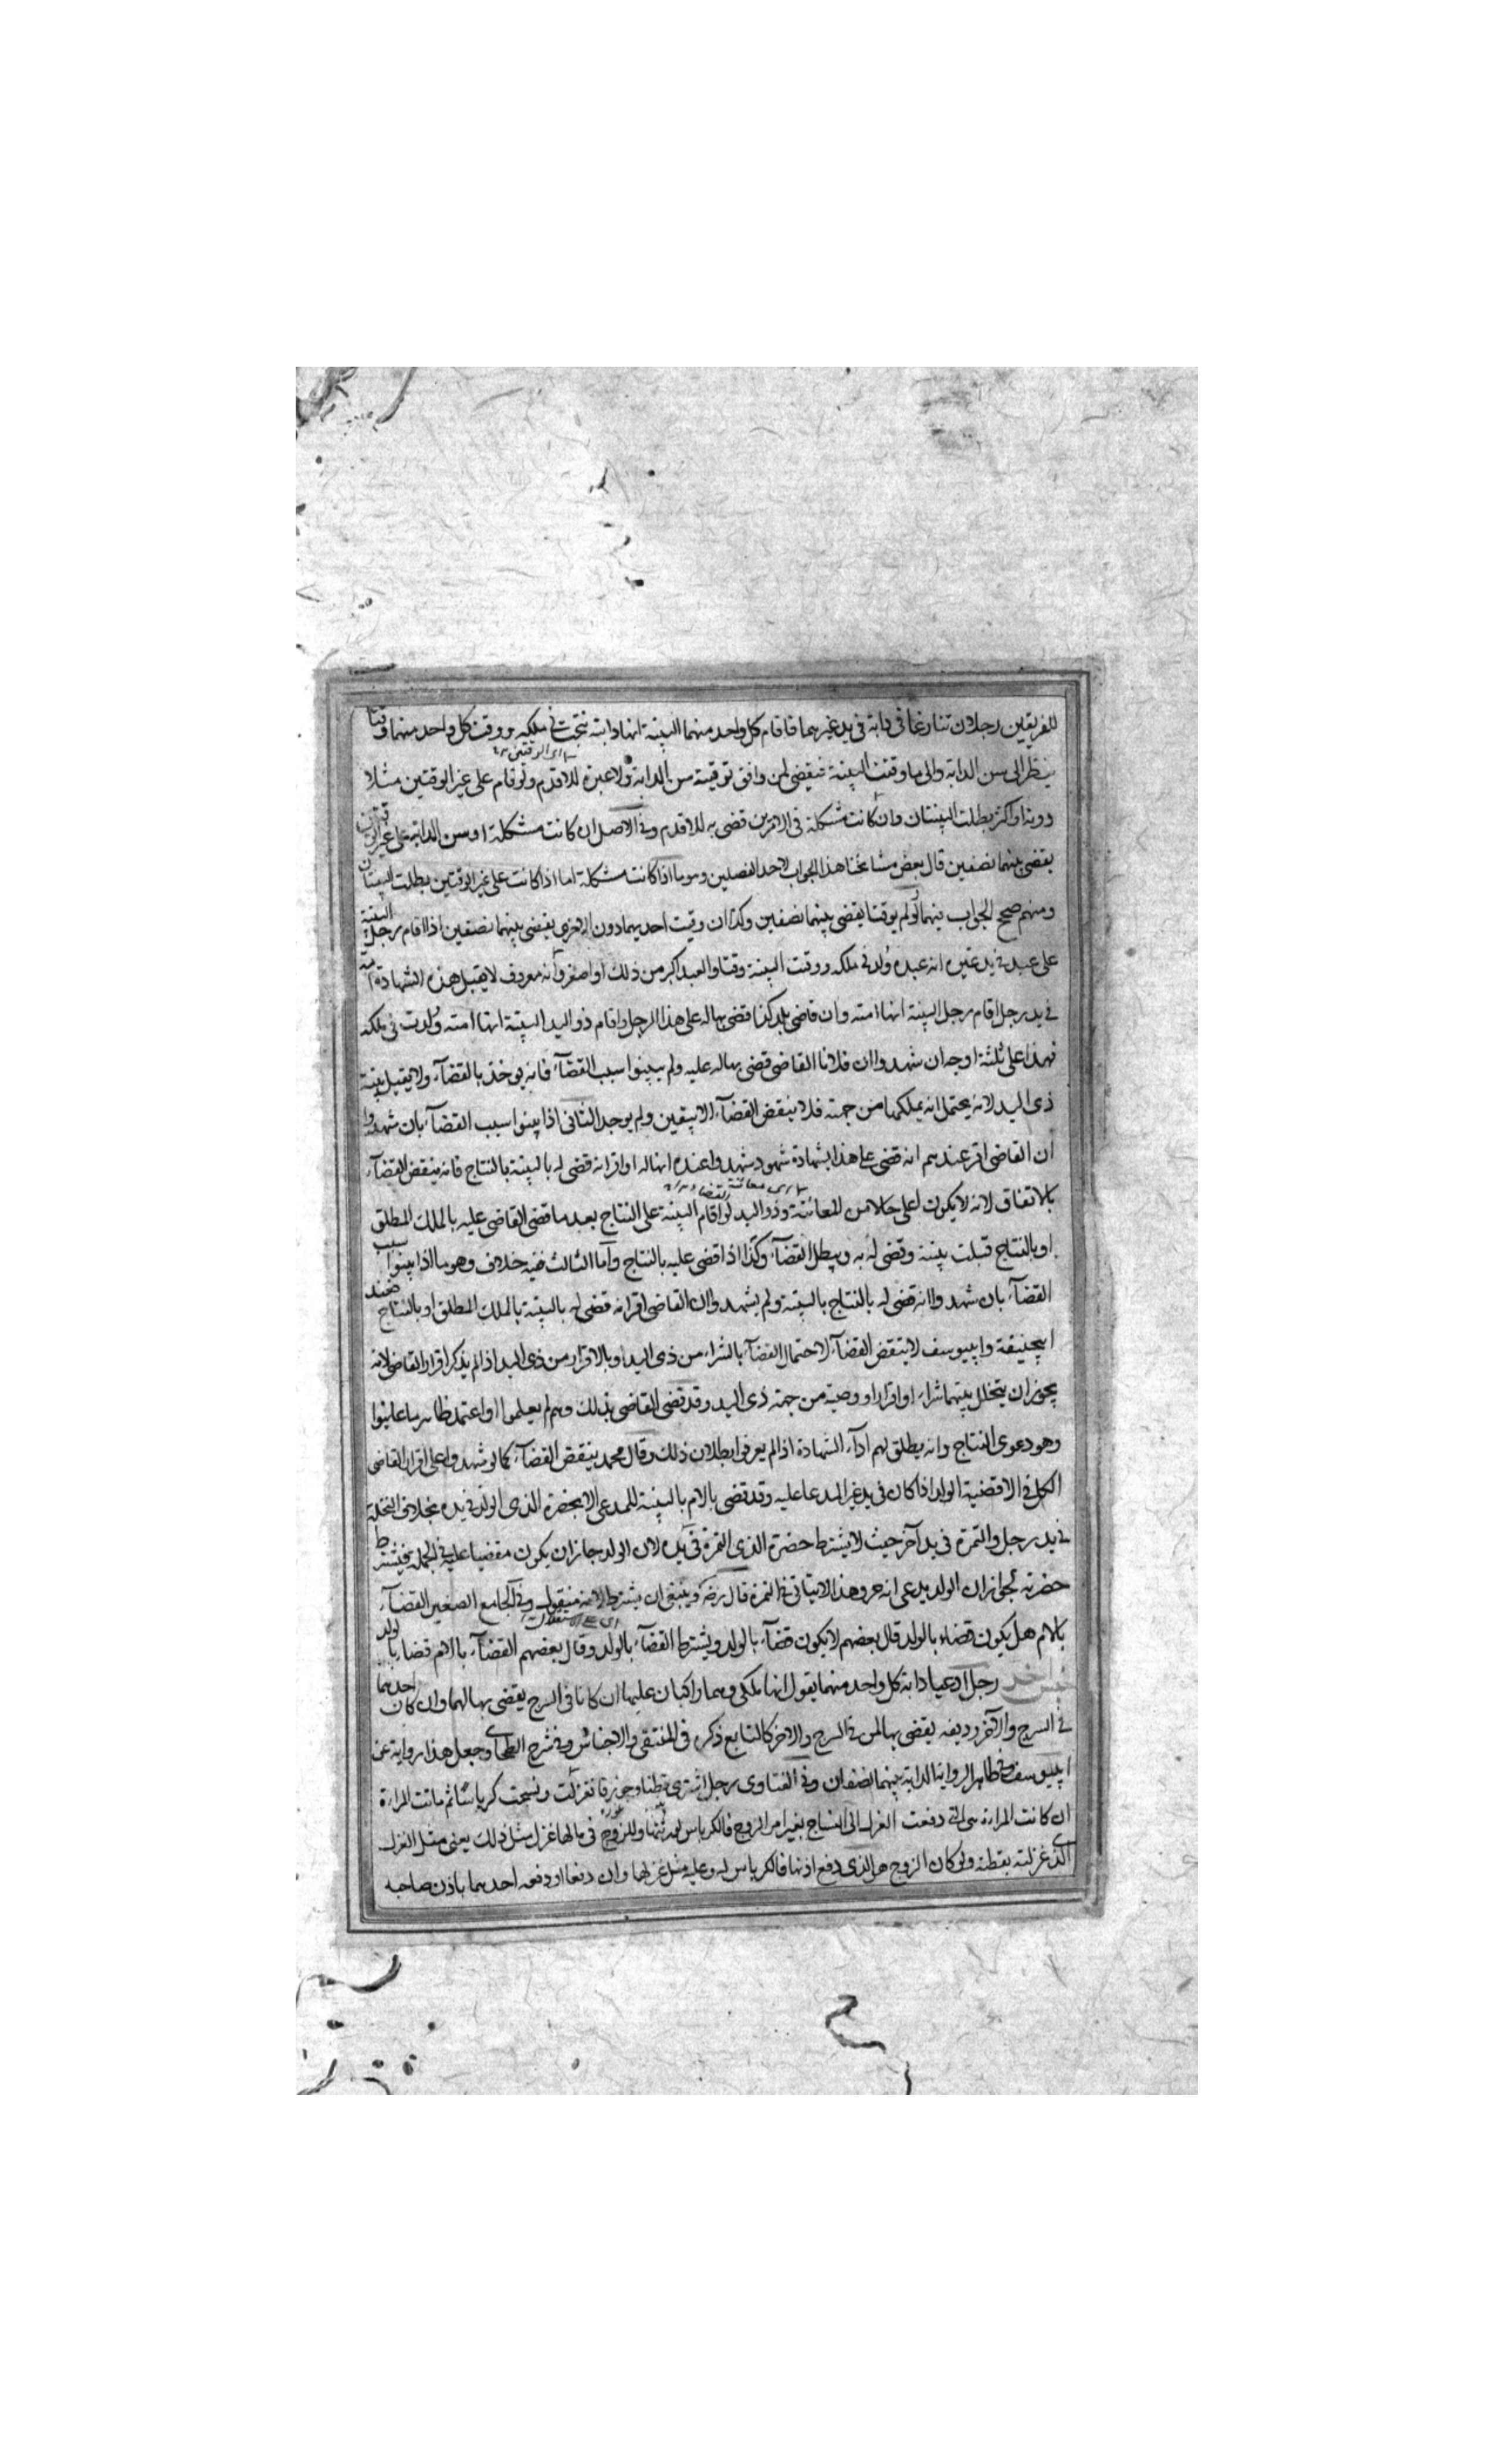 للفريقين رجلان تنازعا في دابة في يد غيرهما فاقام كل واحد منهما البينة انها دابته نتجت في ملكه ووقت كل واحد منهما وقتا
ينظر الى سن الدابة والى ما وقتت البينة فيقضى لمن وافق توقيته سن الدابة ولا عبرة للاقدم ولو قام على غير الوقتين مثلا
دونه او اكثر بطلت البينتان وان كانت مشكلة في الامرين قضى به للاقدم وفي الاصل ان كانت مشكلة او سن الدابة على غير الوقتين
يقضى بينهما نصفين قال بعض مشايخنا هذا الجواب لاحد الفصلين وهو ما اذا كانت مشكلة اما اذا كانت على غير الوقتين بطلت البينتان
ومنهم صحح الجواب فيهما ولو لم يوقتا يقضى بينهما نصفين وكذا ان وقت احديهما دون الاخرى يقضى بينهما نصفين اذا اقام رجل البينة
على عبد في يد غيره انه عبده ولد في ملكه ووقت البينة وقتا والعبد اكبر من ذلك او اصغر وانه معروف لا يقبل هذه الشهادة امة
في يد رجل اقام رجل البينة انها امته وان قاضي بلد كذا قضى بها له على هذا الرجل واقام ذو اليد البينة انها امته ولدت في ملكه
فهذا على ثلثة اوجه ان شهدوا ان فلانا القاضي قضى بها له عليه ولم يبينوا سبب القضاء فانه يوخذ بالقضاء ولا يقبل بينة
ذي اليد لانه يحتمل انه يملكها من جهته فلا ينقض القضاء الا بيقين ولم يوجد الثاني اذا بينوا سبب القضاء بان شهدوا
ان القاضي اقر عندهم انه قضى على هذا بشهادة شهود شهدوا عنده انها له او اقر انه قضى له بالبينة بالنتاج فانه ينقض القضاء
بالاتفاق لانه لا يكون اعلى حالا من المعاينة وذو اليد لو اقام البينة على النتاج بعد ما قضى القاضي عليه بالملك المطلق
او بالنتاج قبلت بينته وقضى له به ويبطل القضاء وكذا اذا قضى عليه بالنتاج واما الثالث ففيه خلاف وهو ما اذا بينوا سبب
القضاء بان شهدوا انه قضى له بالنتاج بالبينة ولم يشهدوا ان القاضي اقر انه قضى له بالبينة بالملك المطلق او بالنتاج فعند
ابيحنيفة وابييوسف لا ينقض القضاء لاحتمال القضاء بالشراء من ذي اليد او بالاقرار من ذي اليد اذا لم يذكر اقرار القاضي لانه
يجوز ان يتخلل بينهما شراء او اقرار او وصية من جهة ذي اليد وقد قضى القاضي بذلك وهم لم يعلموا او اعتمد ظاهر ما عاينوا
وهو دعوى النتاج وانه يطلق لهم اداء الشهادة اذا لم يعرفوا بطلان ذلك وقال محمد ينقض القضاء كما لو شهدوا على اقرار القاضي
الكل في الاقضية الولد اذا كان في يد غير المدعا عليه وقد قضى بالام بالبينة للمدعي الا بحضرة الذي الولد في يده بخلاف النخلة
في يد رجل والتمرة في يد آخر حيث لا يشترط حضرة الذي التمرة في يده لان الولد جاز ان يكون مقضيا عليه في الجملة فيشترط
حضرته لجواز ان الولد يدعى انه حر وهذا لا يتاتى في التمرة قال رضه وينبغي ان يشترط لانه منقول وفي الجامع الصغير القضاء
بالام هل يكون قضاء بالولد قال بعضهم لا يكون قضاء بالولد ويشترط القضاء بالولد وقال بعضهم القضاء بالام قضاء بالولد
رجل ادعيا دابة كل واحد منهما يقول انها ملكي وهما راكبان عليها ان كانا في السرج يقضى بها لهما وان كان احدهما
في السرج والآخر رديفه يقضى بها لمن في السرج والاخر كالتابع ذكره في المنتقى والاجناس وفي شرح الطحاوي جعل هذا رواية عن
ابييوسف وفي ظاهر الرواية الدابة بينهما نصفان وفي الفتاوى رجل اشترى قطنا وغزلت ونسجت كرباسا ثم ماتت المراة
ان كانت المراة هي التي دفعت الغزل الى النساج بغير امر الزوج فالكرباس لها وللزوج في مالها غزل مثل ذلك يعني مثل الغزل
الذي غزلته بقطنه ولو كان الزوج هو الذي دفع فالكرباس له وعليه مثل غزلها وان دفعا او دفعه احدهما باذن صاحبه